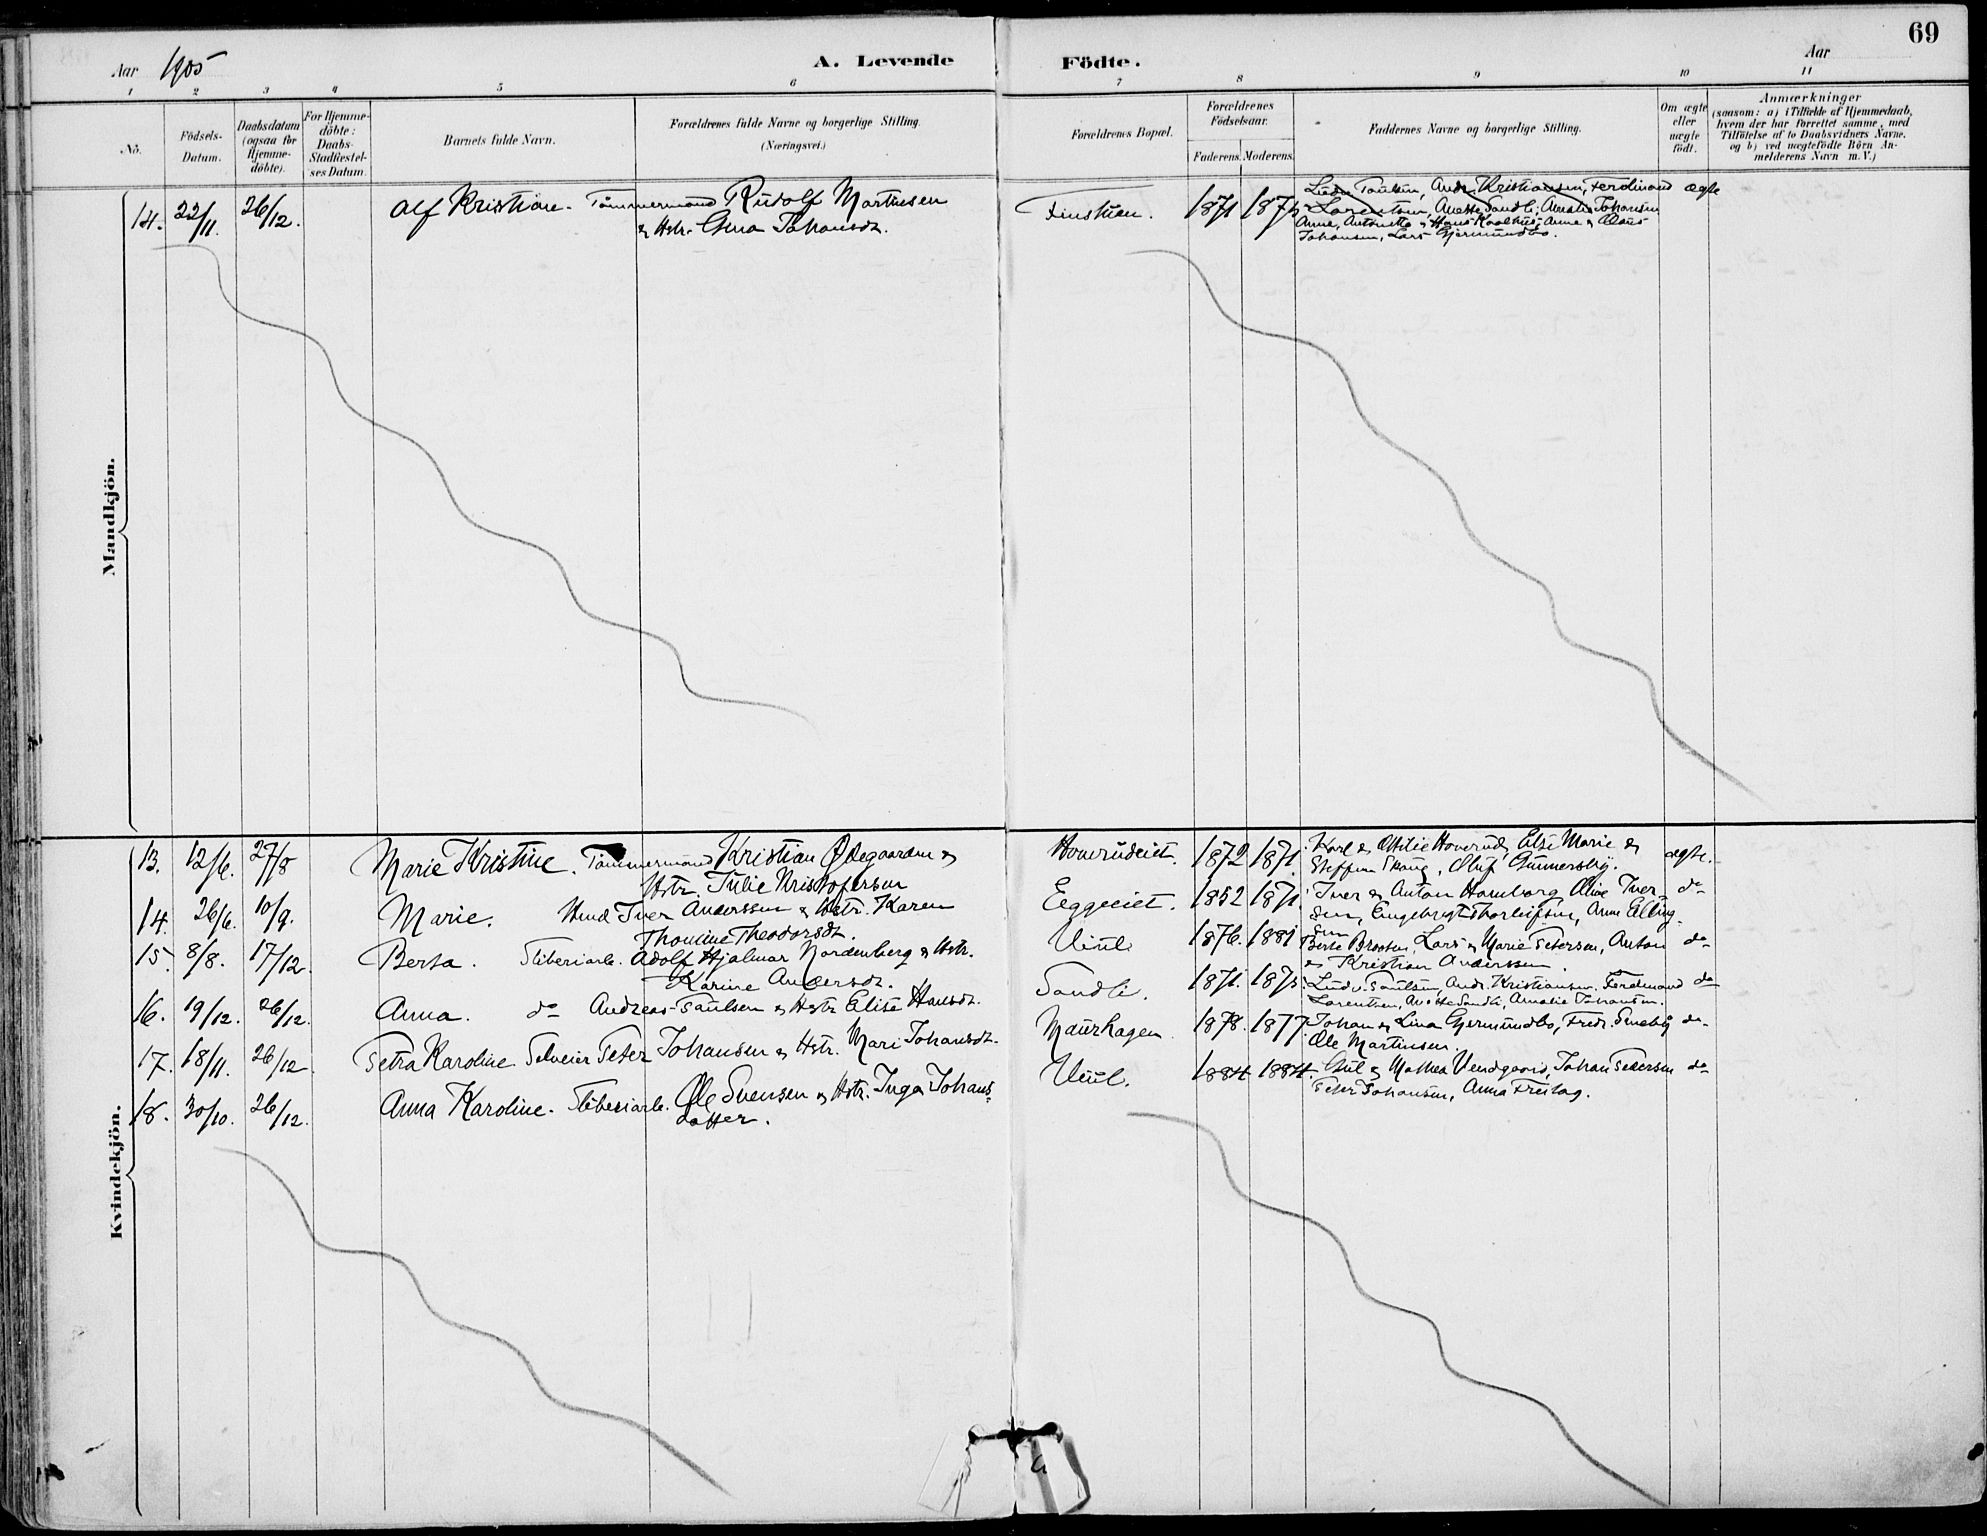 69
Aar 1905
A. Levende
Födte.
Aar
1 2 3 4 5 6 7 8 9 10 11
Nö.
Födsels-
Datum.
Daabsdatum
(ogsaa for
Hjemme-
döbte).
For Hjemme-
döbte:
Daabs-
Stadfæstel-
ses Datum.
Barnets fulde Navn.
Forældrenes fulde Navne og borgerlige Stilling.
(Næringsvei.)
Forældrenes Bopæl.
Forældrenes
Födselsaar.
Faderens. Moderens.
Faddernes Navne og borgerlige Stilling.
Om ægte
eller
uægte
födt.
Anmærkninger
(saasom: a) i Tilfælde af Hjemmedaab,
hvem der har forrettet samme, med
Tilföielse af to Daabsvidners Navne,
og b) ved uægtefödte Börn An-
melderens Navn m. V.)
Mandkjön.
14. 22/11. 26/12. Alf Kristian. Tömmermand Rudolf Martinsen
& Hstr. Gina Johansdt.
1871 187
Andr. Kristiansen, Ferdinand ægte
Lorentsen, Anette Sandli, Amalie Johansen
Anne, Antonette & Hans & Anne & Claus
Johansen, Lars Gjermundbo.
Kvindekjön.
13. 12/6. 27/8 Marie Kristine. Tömmermand Kristian Ødegaarden &
Hstr. Julie Kristofersen
Honerudeiet. 1872 1871. Karl & Otilie Honerud, Else Marie &
Steffen Skaug, Oluf Gunnersby. ægte.
14. 26/6. 10/9. Marie. Iver Anderssen & Hstr. Karen
Thomine Theodorsdt.
Eggeeiet. 1852 1871. Iver & Anton Hamborg, Olive Iver- do
sen, Engebregt Thorleifsen, Anne Elling-
sen
15. 8/8. 17/12. Berta. Sliberiarb. Adolf Hjalmar Nordenberg & Hstr.
Karine Andersdt.
Viul. 1876. 1881 Berte Braaten, Lars & Marie Petersen, Anton do
& Kristian Anderssen.
16. 19/12. 26/12. Anna. do Andreas Paulsen & Hstr Elise Hansdt.
Sandli. 1871. 187 Ludv. Paulsen, Andr. Kristiansen, Ferdinand do
Lorentsen, Anette Sandli, Amalie Johansen.
17. 18/11. 26/12 Petra Karoline Peter Johansen & Hstr. Mari Johansdt.
Maurhagen 1878. 1877. Johan & Lina Gjermundbo, Fredr. Smeby do.
Ole Martinsen.
18. 30/10. 26/12. Anna Karoline. Sliberiarb. Ole Svensen & Hstr. Inga Johans-
datter.
Viul. 1884 1884. & Mathea Vendgaard, Johan Pedersen do
Peter Johansen, Anna Freitag.